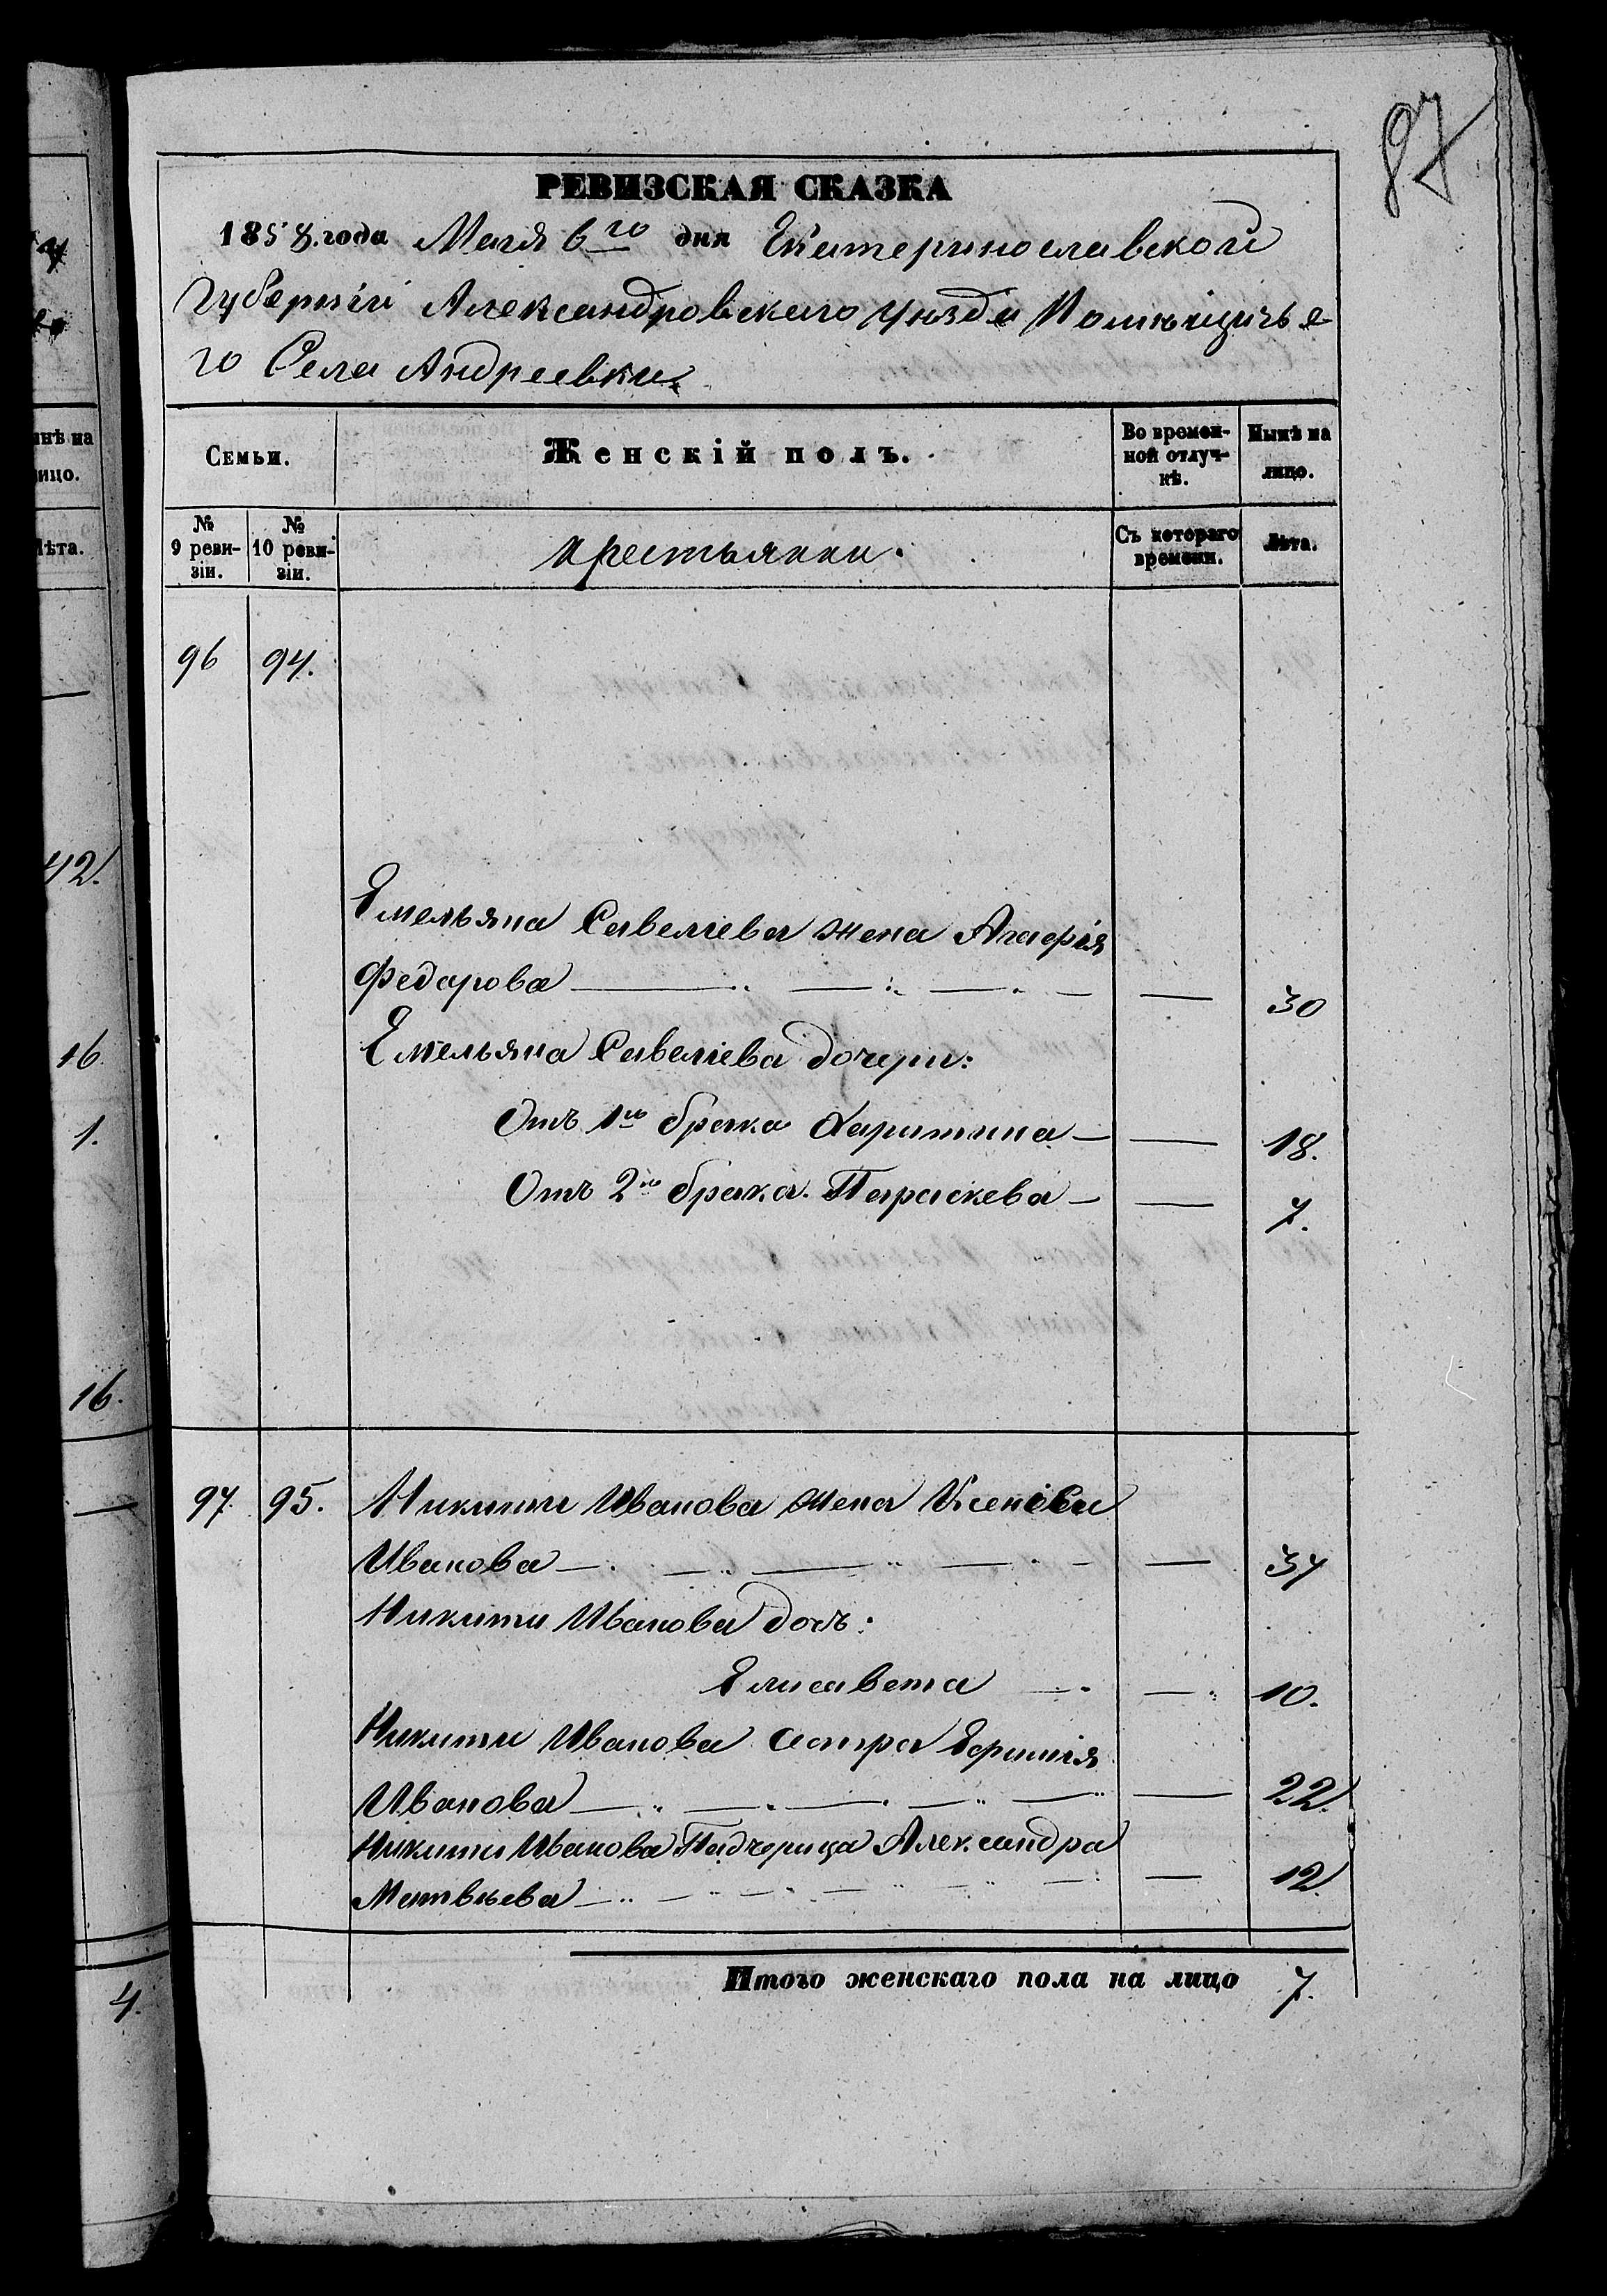 87
РЕВИЗСКАЯ СКАЗКА
1858. года Мая 6го дня Екатеринославской
Губерніи Александровскаго уѣзда Помѣщичье
го Села Андреевки.
Семьи.
Женскій полъ.
Во времен-
ной отлуч-
кѣ.
Нынѣ на
лицо.
№
9 реви-
зіи.
№
10 реви-
зіи.
крестьянки.
Съ котораго
времени.
Лѣта.
96 94.
Емельяна Савелiева жена Агафія
Федорова — — — — — 30
Емельяна Савелiева дочери:
Отъ 1го брака Харитина — — 18.
Отъ 2го брака Параскева — — 7.
97. 95. Никиты Иванова жена
Иванова — — — — — — 37
Никиты Иванова дочь:
Елисавета — — 10.
Никиты Иванова сестра
Иванова — — — — — — 22.
Никиты Иванова Падчерица Александра
Матвѣева — — — — — — — — 12.
Итого женскаго пола на лицо 7.
нѣ на
ицо.
ѣта.
42.
16.
1.
16.
4.